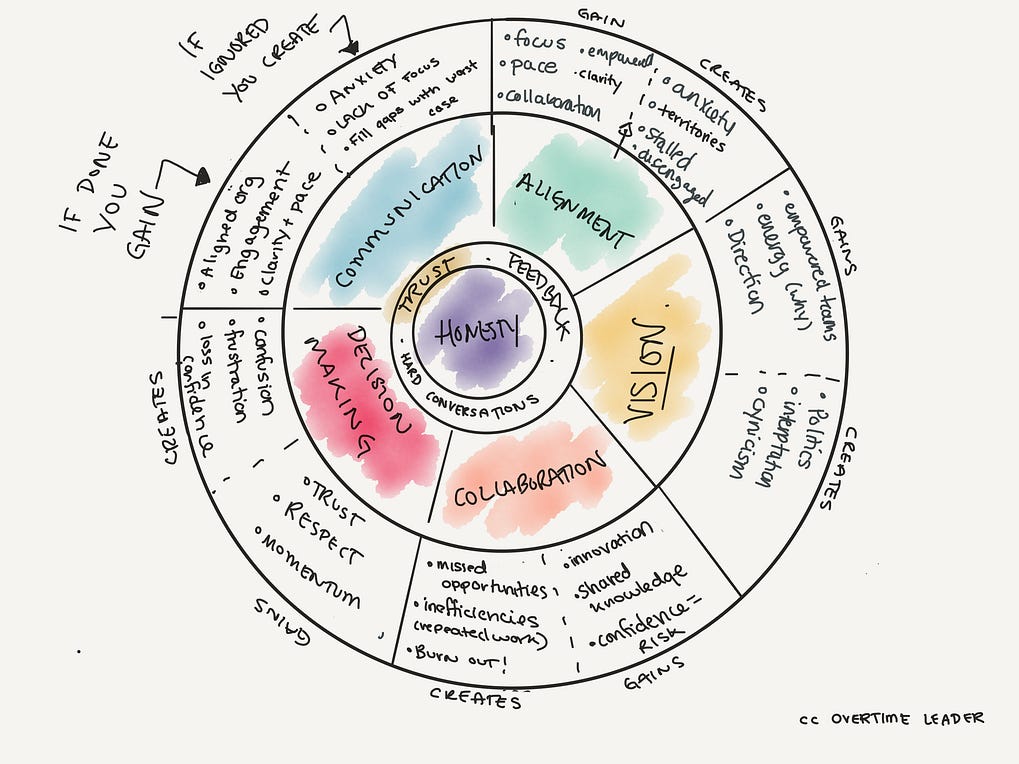 IF
IGNORED
YOU CREATE
IF DONE
YOU
GAIN
• ANXIETY
• LACK OF FOCUS
• Fill gaps with worst
case
• Aligned org
• Engagement
• Clarity + pace
COMMUNICATION
GAIN
• focus
• pace
• collaboration
• empowered
• clarity
CREATES
• anxiety
• territories
• Stalled
• disengaged
ALIGNMENT
GAINS
• empowered teams
• energy (why)
• Direction
CREATES
• Politics
• cynicism
VISION
GAINS
• innovation
• shared
knowledge
• confidence =
RISK
CREATES
• missed
opportunities
• inefficiencies
(repeated work)
• Burn out!
COLLABORATION
GAINS
• TRUST
• RESPECT
• MOMENTUM
CREATES
• confusion
• frustration
• loss in
confidence
DECISION
MAKING
TRUST
FEEDBACK
HARD CONVERSATIONS
HONESTY
cc OVERTIME LEADER